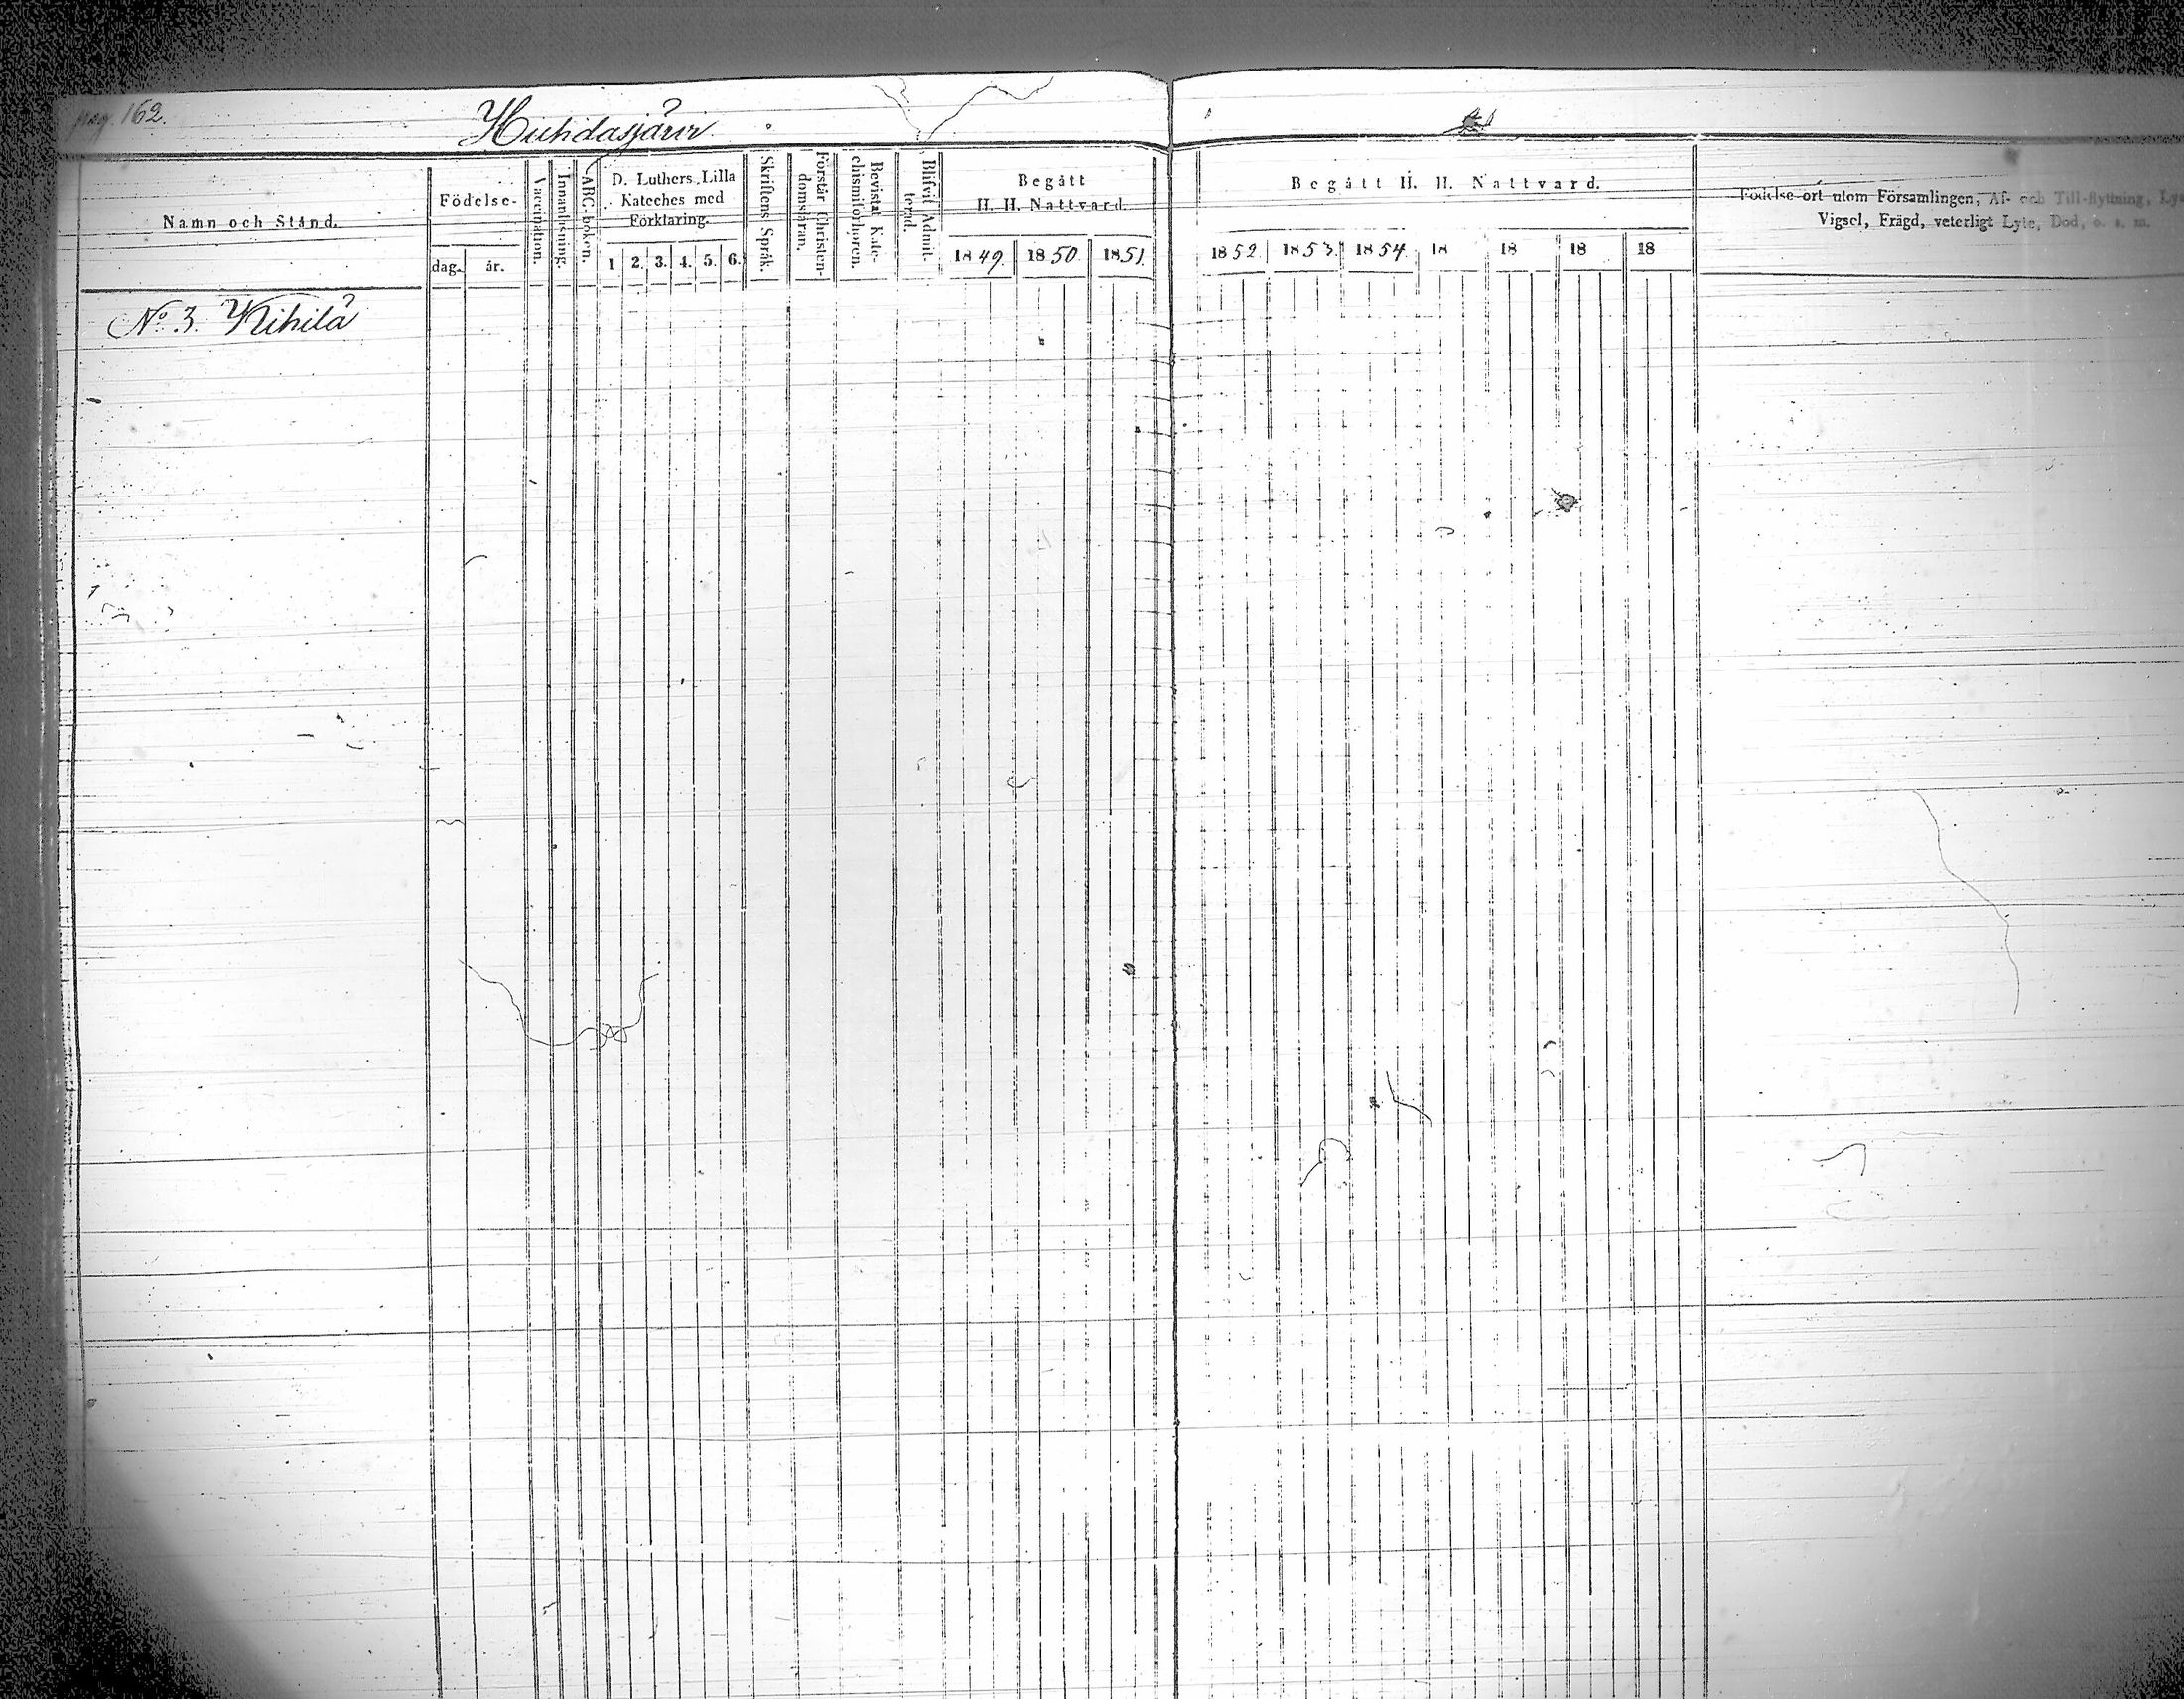 pag. 162.
Huhdasjärvi
Namn och Stånd.
Födelse-
dag. år.
Vaccination.
Innanläsning.
ABC-boken.
D. Luthers Lilla
Kateches med
Förklaring.
1 2. 3. 4. 5. 6.
Skriftens Språk.
Förstår Christen-
domsläran.
Bevistat Kate-
chismiförhören.
Blifvit Admit-
terad.
Begått
H. H. Nattvard.
1849. 1850. 1851.
Begått H. H. Nattvard.
1852. 1853. 1854. 18 18 18 18
Födelse-ort utom Församlingen, Af- och Till-flyttning,
Vigsel, Frägd, veterligt Lyte, Död, o. s. m.
No 3. Kihilä